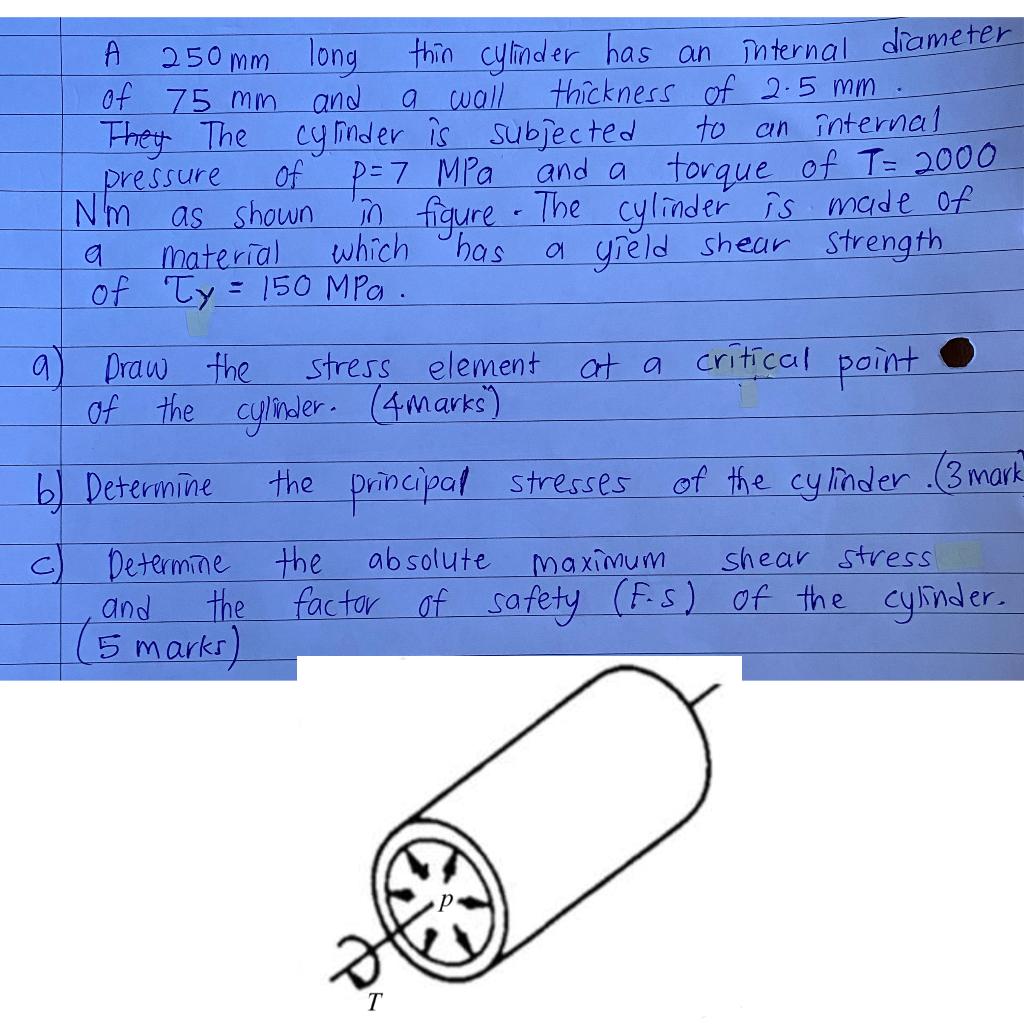 A 250 mm long thin cylinder has an internal diameter
of 75 mm and a wall thickness of 2.5 mm.
They The cylinder is subjected to an internal
pressure of P=7 MPa and a torque of T= 2000
Nm as shown in figure. The cylinder is made of
a material which has a yield shear strength
of τy = 150 MPa.
a) Draw the stress element at a critical point
of the cylinder. (4marks)
b) Determine the principal stresses of the cylinder. (3 mark
c) Determine the absolute maximum shear stress
and the factor of safety (F.S) of the cylinder.
(5 marks)
p
T